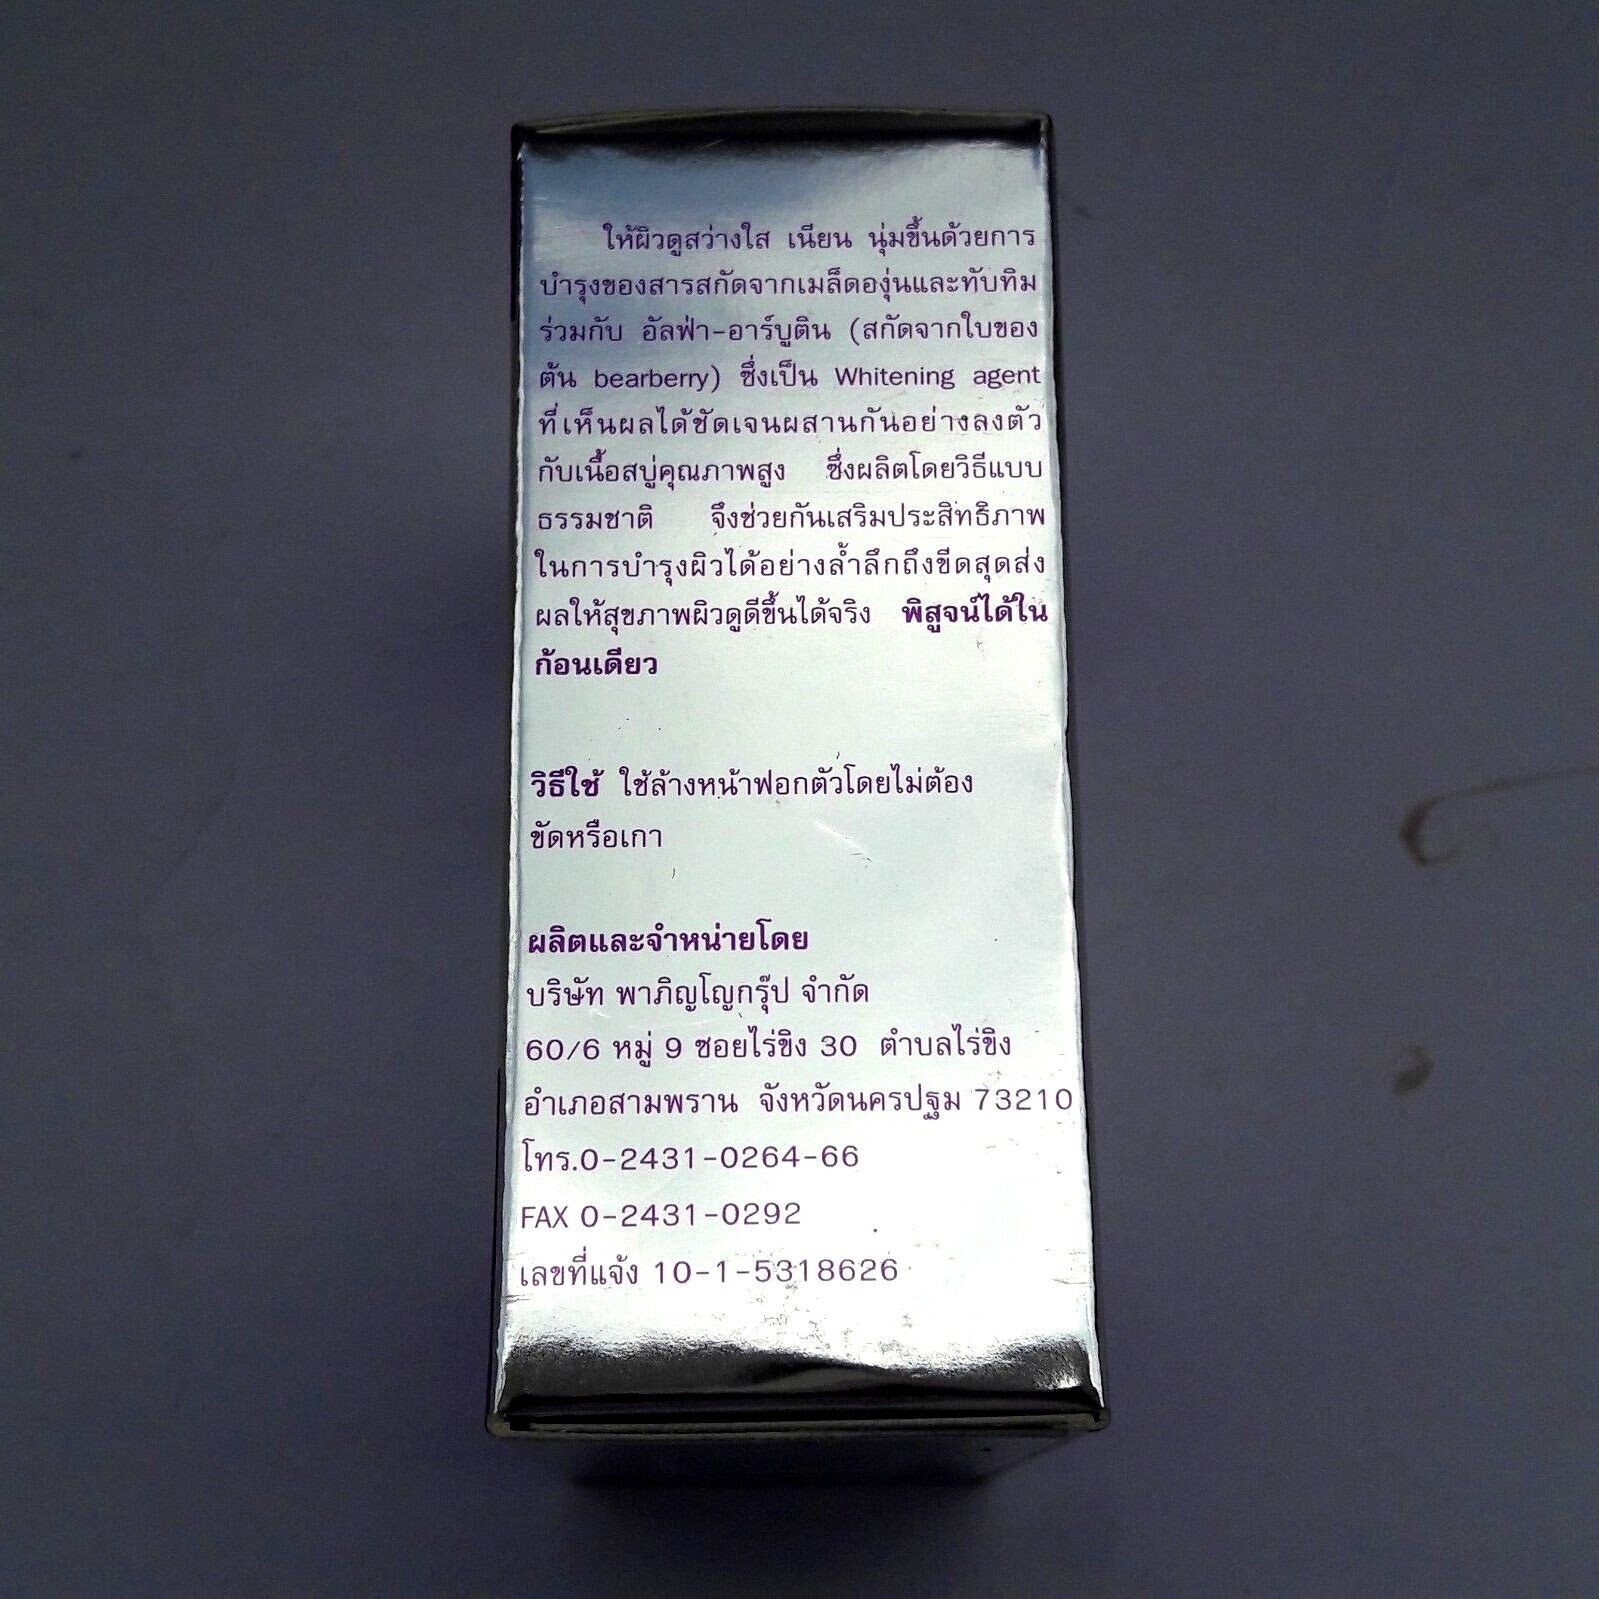 ให้ผิวดูสว่างใส เนียน นุ่มขึ้นด้วยการ
บำรุงของสารสกัดจากเมล็ดองุ่นและทับทิม
ร่วมกับ อัลฟ่า-อาร์บูติน (สกัดจากใบของ
ต้น bearberry) ซึ่งเป็น Whitening agent
ที่เห็นผลได้ชัดเจนผสานกันอย่างลงตัว
กับเนื้อสบู่คุณภาพสูง ซึ่งผลิตโดยวิธีแบบ
ธรรมชาติ จึงช่วยกันเสริมประสิทธิภาพ
ในการบำรุงผิวได้อย่างล้ำลึกถึงขีดสุดส่ง
ผลให้สุขภาพผิวดูดีขึ้นได้จริง พิสูจน์ได้ใน
ก้อนเดียว
วิธีใช้ ใช้ล้างหน้าฟอกตัวโดยไม่ต้อง
ขัดหรือเกา
ผลิตและจำหน่ายโดย
บริษัท พาภิญโญกรุ๊ป จำกัด
60/6 หมู่ 9 ซอยไร่ขิง 30 ตำบลไร่ขิง
อำเภอสามพราน จังหวัดนครปฐม 73210
โทร.0-2431-0264-66
FAX 0-2431-0292
เลขที่แจ้ง 10-1-5318626